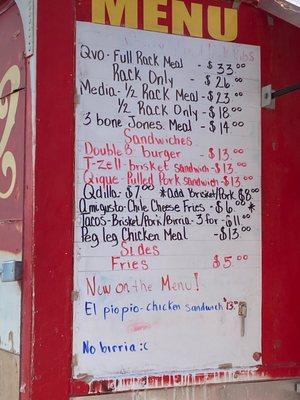 MENU
Qvo - Full Rack Meal - $33.00
Rack Only - $26.00
Media - ½ Rack Meal - $23.00
½ Rack Only - $18.00
3 bone Jones. Meal - $14.00
Sandwiches
Double B burger - $13.00
J-zell - brisket Sandwich - $13.00
Qique - Pulled Pork sandwich - $13.00
Qdilla - $7.00 *Add Brisket/Pork $8.00
Amigusto - Chile Cheese Fries - $6.00 *
Tacos - Brisket/Pork/Birria - 3 for - $11.00
Peg leg Chicken Meal - $13.00
Sides
Fries $5.00
Now on the Menu!
El pio pio - chicken sandwich $13.00
No birria :c